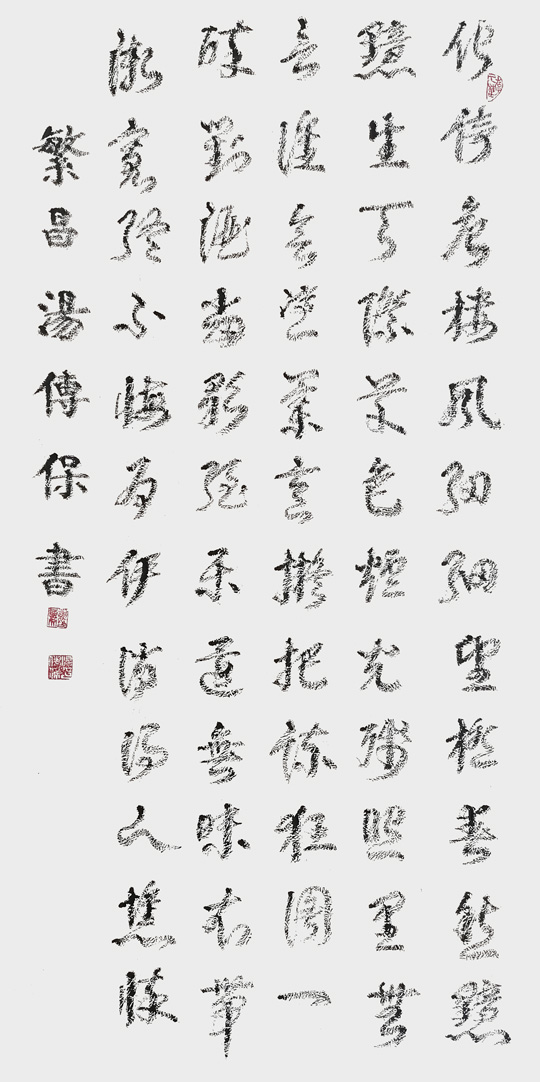 佇倚危樓風細細望極春愁黯
黯生天際草色煙光殘照里無
言誰會凭闌意擬把疎狂圖一
醉對酒當歌強樂還無味衣帶
漸寬終不悔為伊消得人憔悴
繁昌湯傳保書